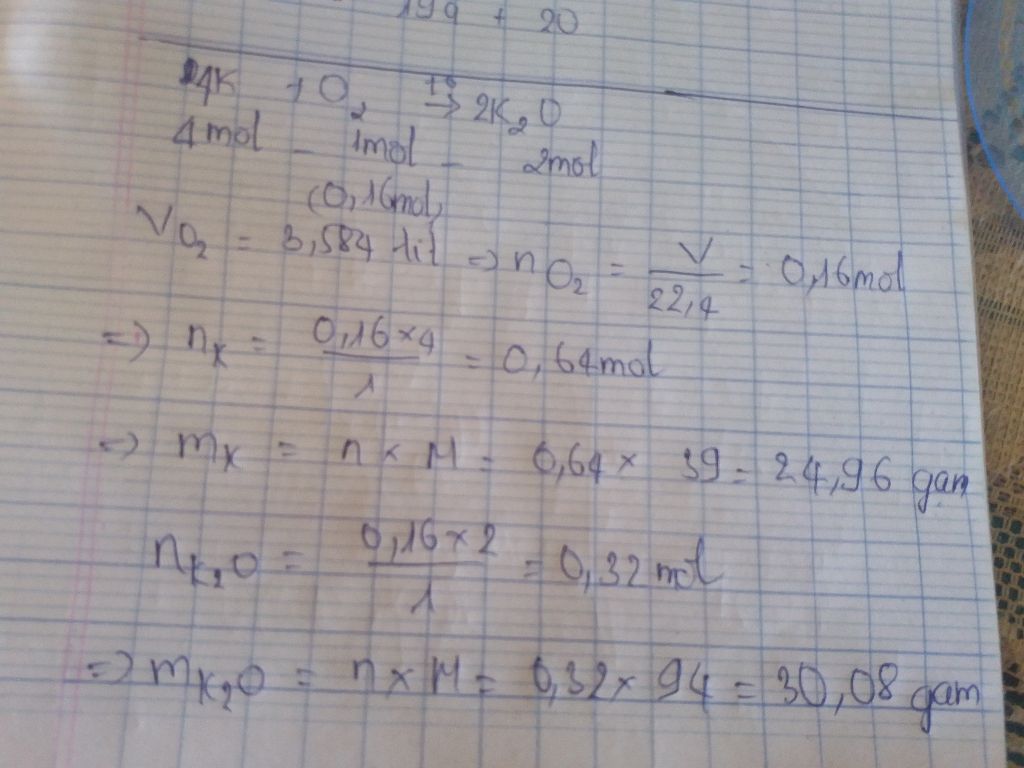 199 + 20
4K + O2 t° → 2K2O
4mol - 1mol - 2mol
(0,16mol)
VO2 = 3,584 lit => nO2 = V/22,4 = 0,16mol
=> nK = 0,16×4/1 = 0,64mol
=> mK = n×M = 0,64× 39 = 24,96 gam
nK2O = 0,16×2/1 = 0,32mol
=> mK2O = n×M = 0,32× 94 = 30,08 gam